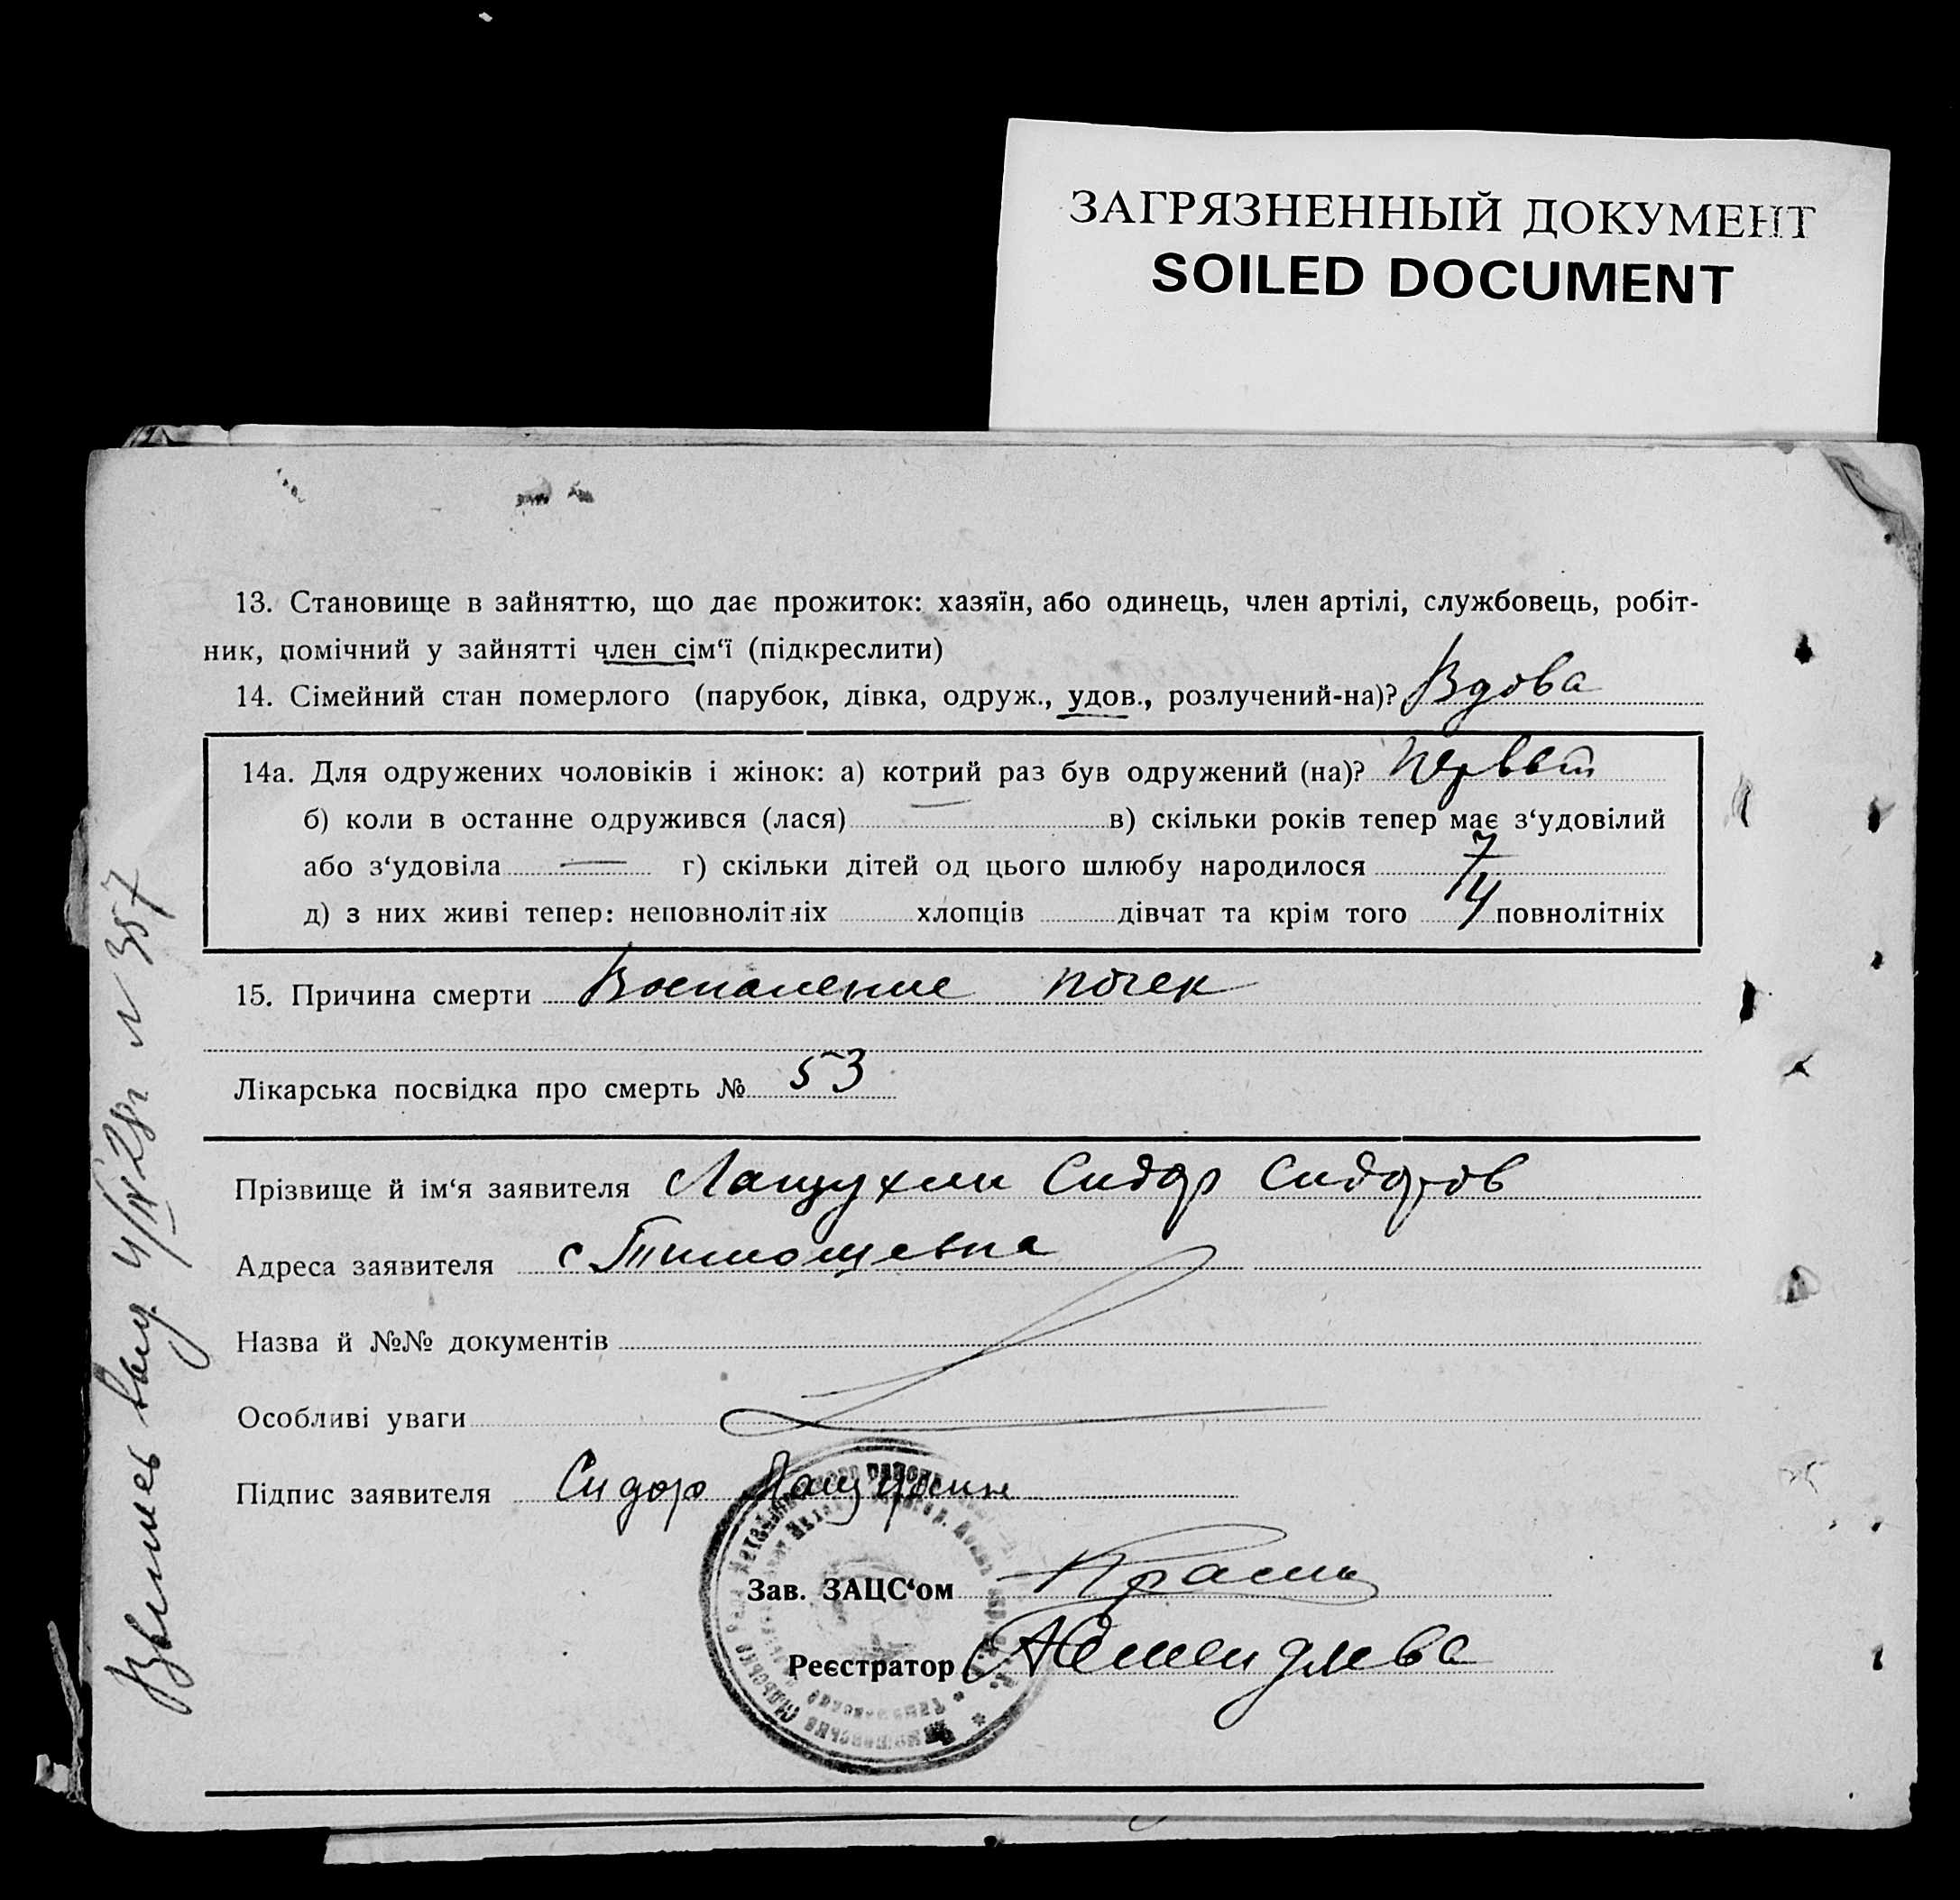 ЗАГРЯЗНЕННЫЙ ДОКУМЕНТ
SOILED DOCUMENT
13. Становище в зайняттю, що дає прожиток: хазяїн, або одинець, член артілі, службовець, робіт-
ник, помічний у зайнятті член сім‘ї (підкреслити)
14. Сімейний стан померлого (парубок, дівка, одруж., удов., розлучений-на)? Вдова
14а. Для одружених чоловіків і жінок: а) котрий раз був одружений (на)?
б) коли в останне одружився (лася) — в) скільки років тепер має з‘удовілий
або з‘удовіла — г) скільки дітей од цього шлюбу народилося 7
д) з них живі тепер: неповнолітніх хлопців дівчат та крім того 4 повнолітніх
15. Причина смерти Воспаление почек
Лікарська посвідка про смерть № 53
Прізвище й ім‘я заявителя Лащухин Сидор Сидоров
Адреса заявителя с Тимошевка
Назва й №№ документів
Особливі уваги
Підпис заявителя Сидор Лащухин
Зав. ЗАЦС‘ом
Реєстратор
№ 357